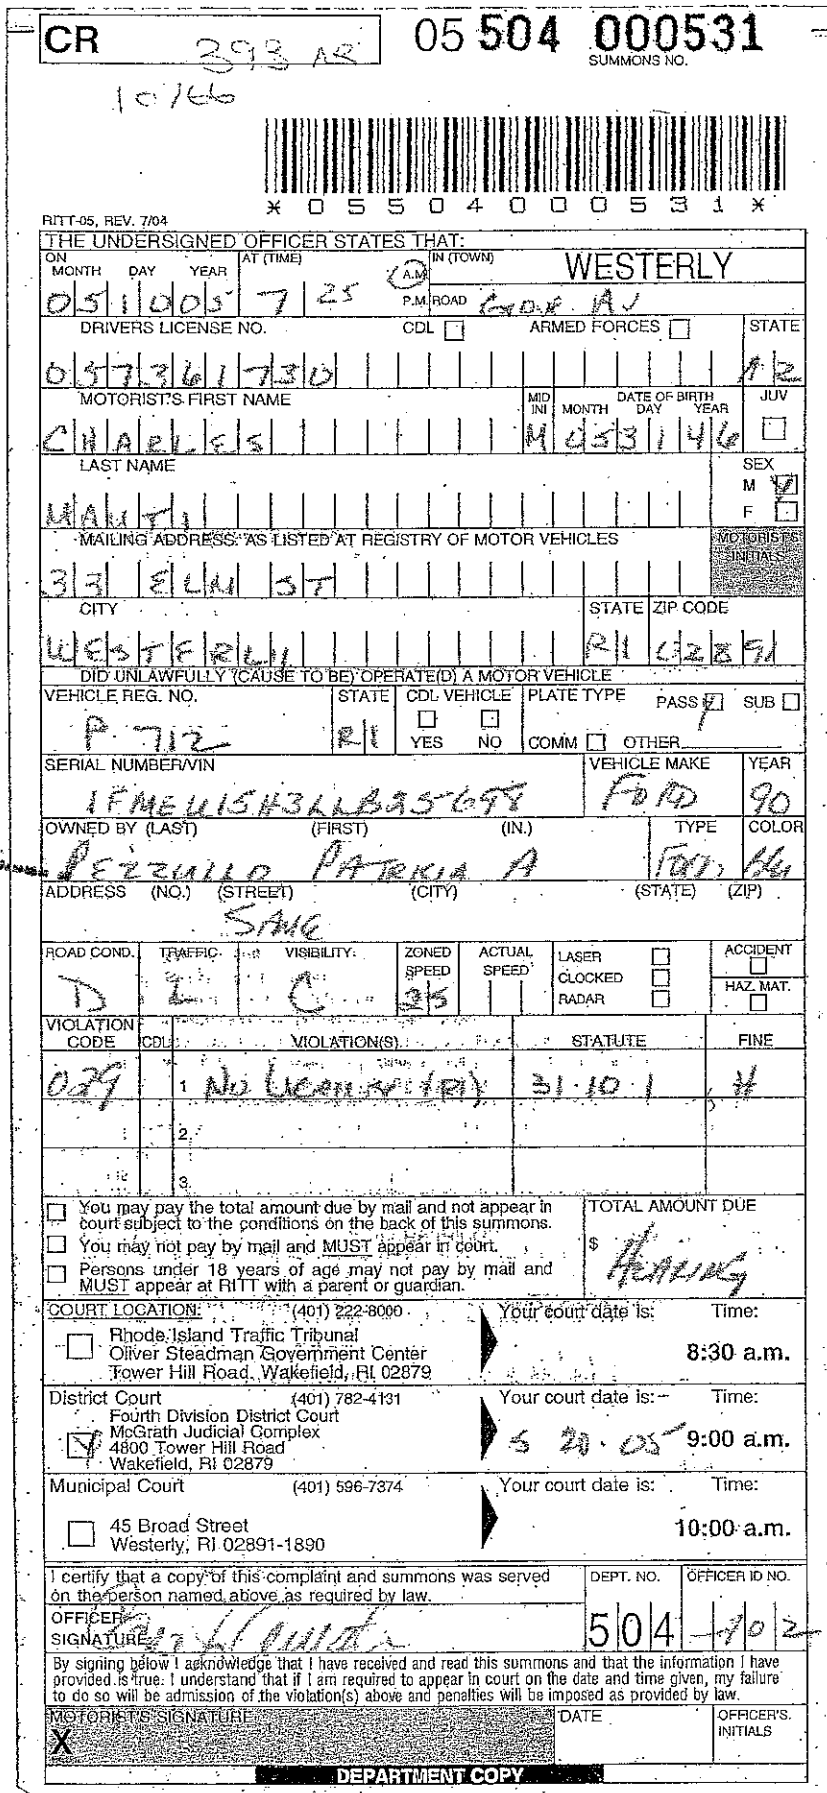 CR 393 05 504 000531
SUMMONS NO.
10166
* 0 5 5 0 4 0 0 0 5 3 1 *
RITT-05, REV. 7/04
THE UNDERSIGNED OFFICER STATES THAT:
ON MONTH DAY YEAR AT (TIME) A.M. IN (TOWN) WESTERLY
051005 7 25 P.M. ROAD
DRIVERS LICENSE NO. CDL ARMED FORCES STATE
057361730
MOTORIST'S FIRST NAME MID INI DATE OF BIRTH MONTH DAY YEAR JUV
CHARLES M 053146
LAST NAME SEX
M
MAUTI F
MAILING ADDRESS: AS LISTED AT REGISTRY OF MOTOR VEHICLES MOTORIST'S INITIALS
33 ELM ST
CITY STATE ZIP CODE
WESTERLY RI 02891
DID UNLAWFULLY (CAUSE TO BE) OPERATE(D) A MOTOR VEHICLE
VEHICLE REG. NO. STATE CDL VEHICLE PLATE TYPE PASS SUB
P 712 RI YES NO COMM OTHER
SERIAL NUMBER/VIN VEHICLE MAKE YEAR
FORD 90
OWNED BY (LAST) (FIRST) (IN.) TYPE COLOR
PEZZULLO PATRICIA A
ADDRESS (NO.) (STREET) (CITY) (STATE) (ZIP)
SAME
ROAD COND. TRAFFIC VISIBILITY ZONED SPEED ACTUAL SPEED LASER CLOCKED RADAR ACCIDENT HAZ. MAT.
D L C 25
VIOLATION CODE CDL VIOLATION(S) STATUTE FINE
029 1 NO LICENSE 31-10-1 H
2.
3.
You may pay the total amount due by mail and not appear in court subject to the conditions on the back of this summons.
You may not pay by mail and MUST appear in court.
Persons under 18 years of age may not pay by mail and MUST appear at RITT with a parent or guardian.
TOTAL AMOUNT DUE
$ HEARING
COURT LOCATION: (401) 222-8000 Your court date is: Time:
Rhode Island Traffic Tribunal
Oliver Steadman Government Center 8:30 a.m.
Tower Hill Road, Wakefield, RI 02879
District Court (401) 782-4131 Your court date is: Time:
Fourth Division District Court
McGrath Judicial Complex 5 20 05 9:00 a.m.
4800 Tower Hill Road
Wakefield, RI 02879
Municipal Court (401) 596-7374 Your court date is: Time:
45 Broad Street 10:00 a.m.
Westerly, RI 02891-1890
I certify that a copy of this complaint and summons was served DEPT. NO. OFFICER ID NO.
on the person named above as required by law.
OFFICER SIGNATURE 504 102
By signing below I acknowledge that I have received and read this summons and that the information I have
provided is true. I understand that if I am required to appear in court on the date and time given, my failure
to do so will be admission of the violation(s) above and penalties will be imposed as provided by law.
MOTORIST'S SIGNATURE DATE OFFICER'S INITIALS
X
DEPARTMENT COPY